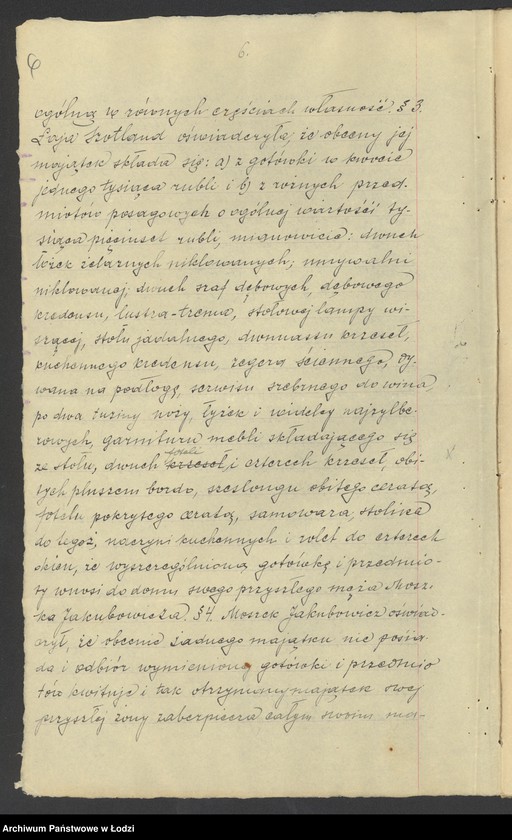 6.
6
ogólną w równych częściach własność. § 3.
Łaja Szotland oświadczyła, że obecny jej
majątek składa się: a) z gotówki w kwocie
jednego tysiąca rubli i b) z różnych przed-
miotów posagowych o ogólnej wartości ty-
siąca pięciuset rubli, mianowicie: dwuch
łóżek żelaznych niklowanych, umywalni
niklowanej, dwuch szaf dębowych, dębowego
kredensu, lustra-trema, stołowej lampy wi-
szącej, stołu jadalnego, dwunastu krzeseł,
kuchennego kredensu, zegara ściennego, dy-
wana na podłogę, serwisu srebrnego do wina
po dwa tuziny noży, łyżek i widelcy najzylbe-
rowych, garnituru mebli składającego się
foteli
ze stołu, dwuch krzeseł, i czterech krzeseł, obi-
tych pluszem bordo, szeslongu obitego ceratą,
fotelu pokrytego ceratą, samowara, stolika
do tegoż, naczyń kuchennych i rolet do czterech
okien, że wyszczególnioną gotówkę i przedmio-
ty wnosi do domu swego przyszłego męża Mosz-
ka Jakubowicza. § 4. Moszek Jakubowicz oświad-
czył, że obecnie żadnego majątku nie posia-
da i odbiór wymienionej gotówki i przedmio
tów kwituje i tak otrzymany majątek swej
przyszłej żony zabezpiecza całym swoim ma-
Archiwum Państwowe w Łodzi